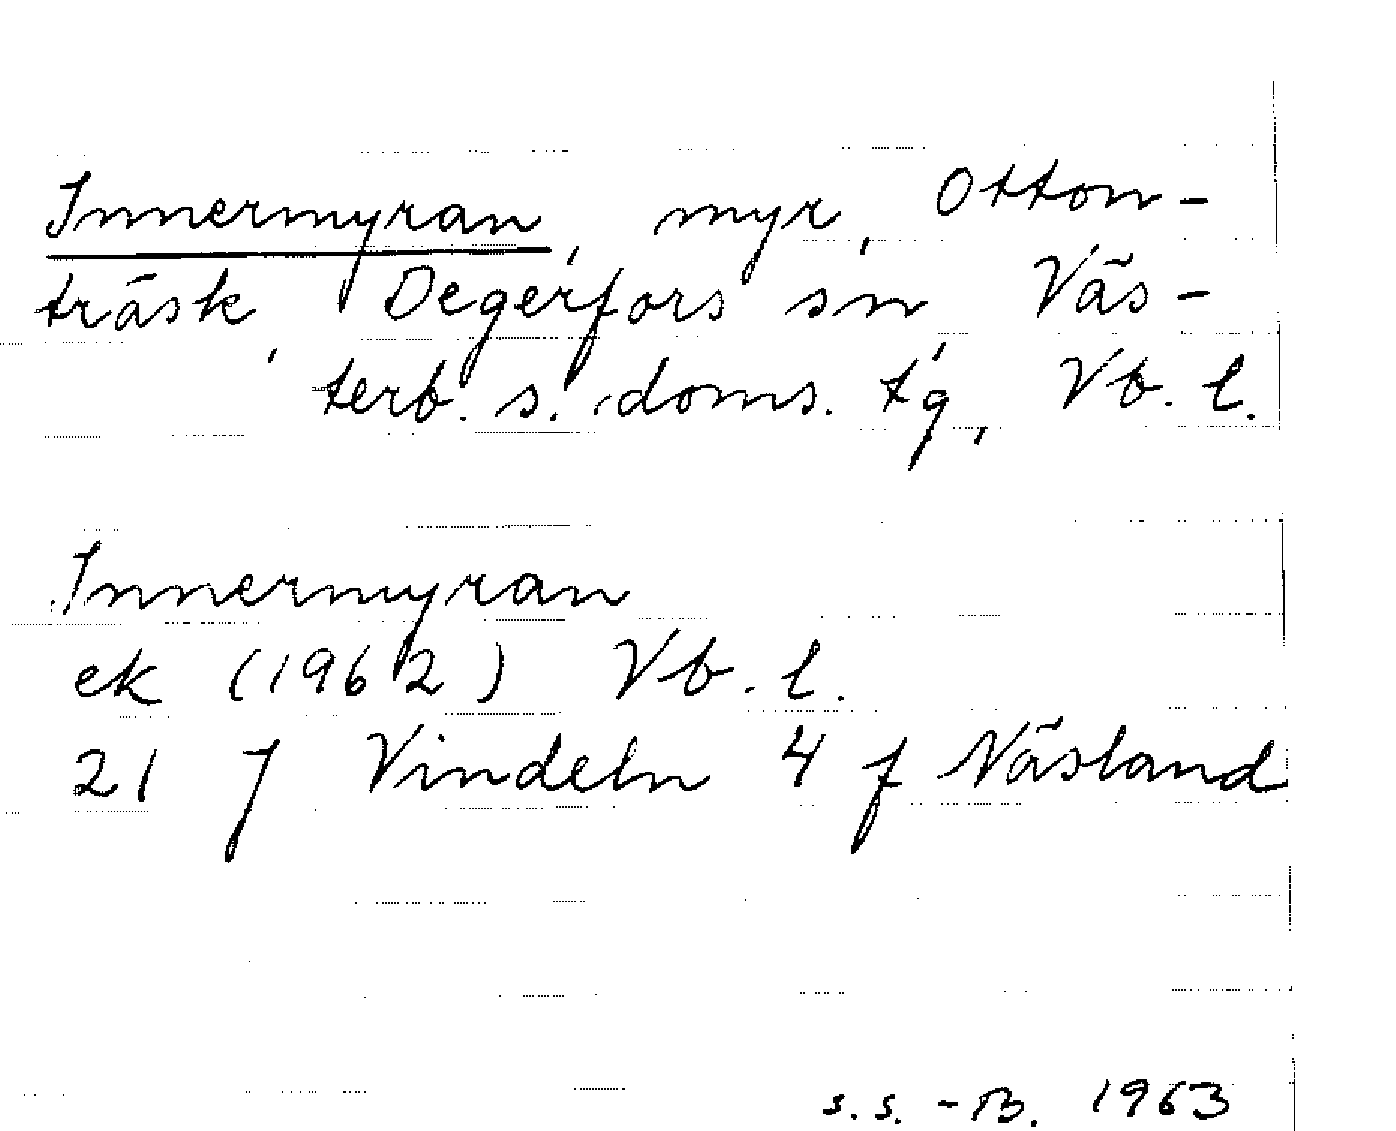 Innermyran, myr, Otton-
träsk, Degerfors sn, Väs-
terb. s. doms. tg, Vb. l.
Innermyran
ek (1962) Vb. l.
21 J Vindeln 4 f Näsland
s.s. - B. 1963